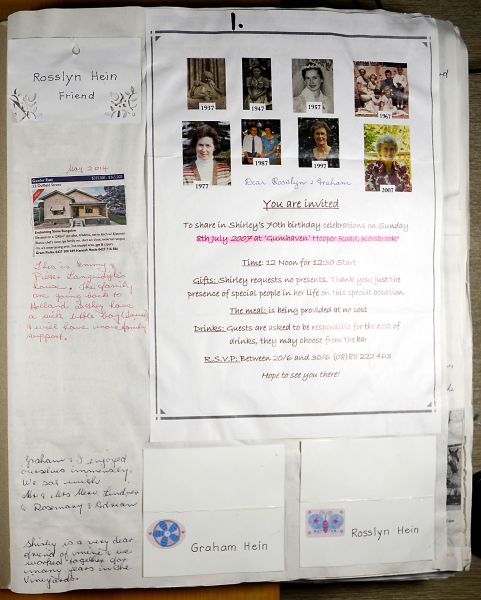 1.
Rosslyn Hein
Friend
1937
1947
1957
1967
1977
1987
1997
2007
Dear Rosslyn & Graham
You are invited
To share in Shirley's 70th birthday celebrations on Sunday
8th July 2007 at 'Gumhaven' Hooper Road, Rosebrook
Time: 12 Noon for 12:30 Start
Gifts: Shirley requests no presents. Thank you; just the
presence of special people in her life on this special occasion.
The meal: is being provided at no cost
Drinks: Guests are asked to be responsible for the cost of
drinks, they may choose from the bar
R.S.V.P: Between 20/6 and 30/6 (08) 85 222 463
Hope to see you there!
May 2014
Gawler East
Duffield Street
This is Jimmy
house. The family
are going back to
Holland as they have
a sick little boy
& will have more family
support.
Graham & I enjoyed
ourselves immensely.
We sat with
Mr & Mrs Merv Lindner
& Rosemary & Adrian
Shirley is a very dear
friend of mine & we
worked together for
many years in the
Vineyards.
Graham Hein
Rosslyn Hein